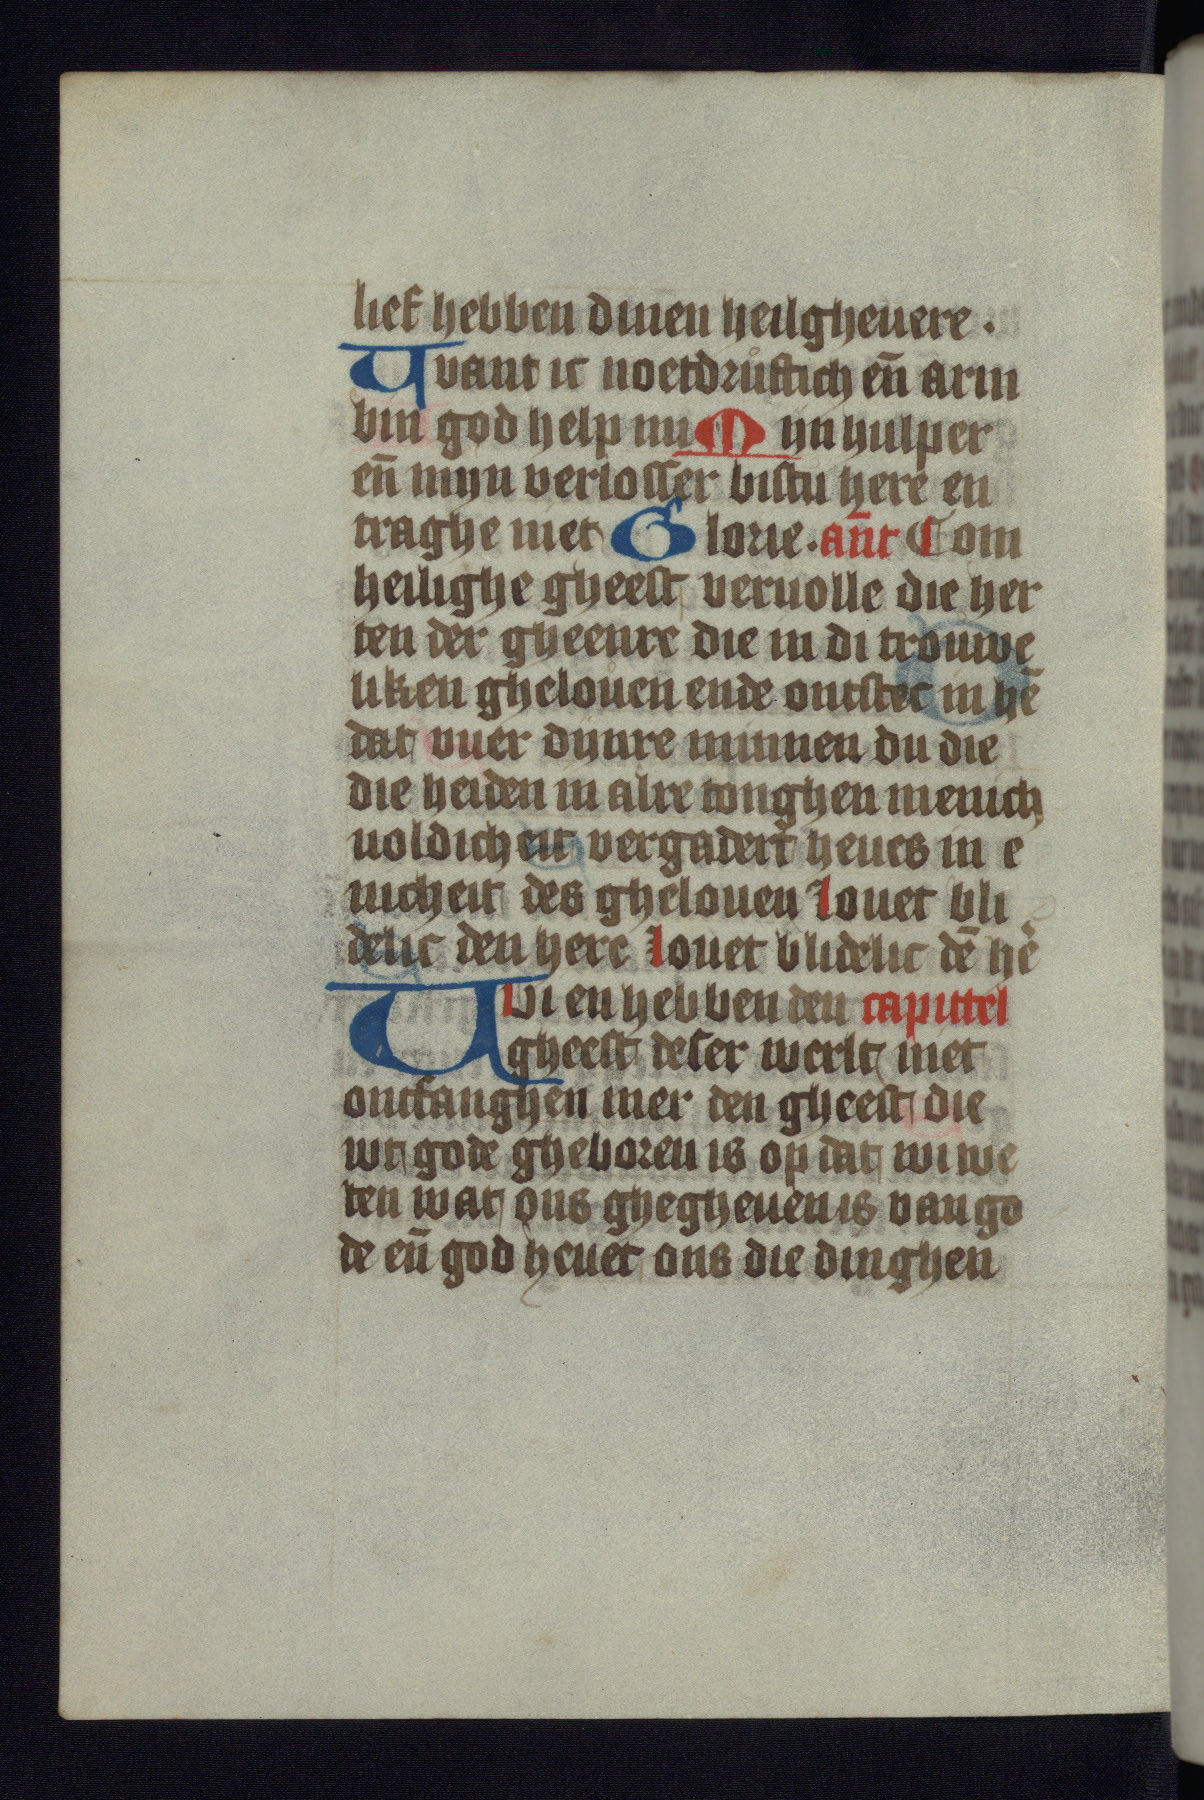 lief hebben dinen heilgheuere .
Uvant ic noetdruftich en̄ arm
bin god help mi Mijn hulper
en̄ mijn verlosser bistu here en
traghe niet Glorie . an̄t Com
heilighe gheest vervolle die her
ten der gheenre die in di trouwe
liken ghelouen ende ontstec in hē
dat vuer dijnre minnen du die
die heiden in alre tonghen menich
uoldicheit vergadert heues in e
nicheit des ghelouen louet bli
delic den here louet blidelic dē hē
Uvi en hebben den capittel
gheest deser werlt niet
ontfanghen mer den gheest die
wt gode gheboren is op dat wi we
ten wat ons ghegheuen is van go
de en̄ god heuet ons die dinghen